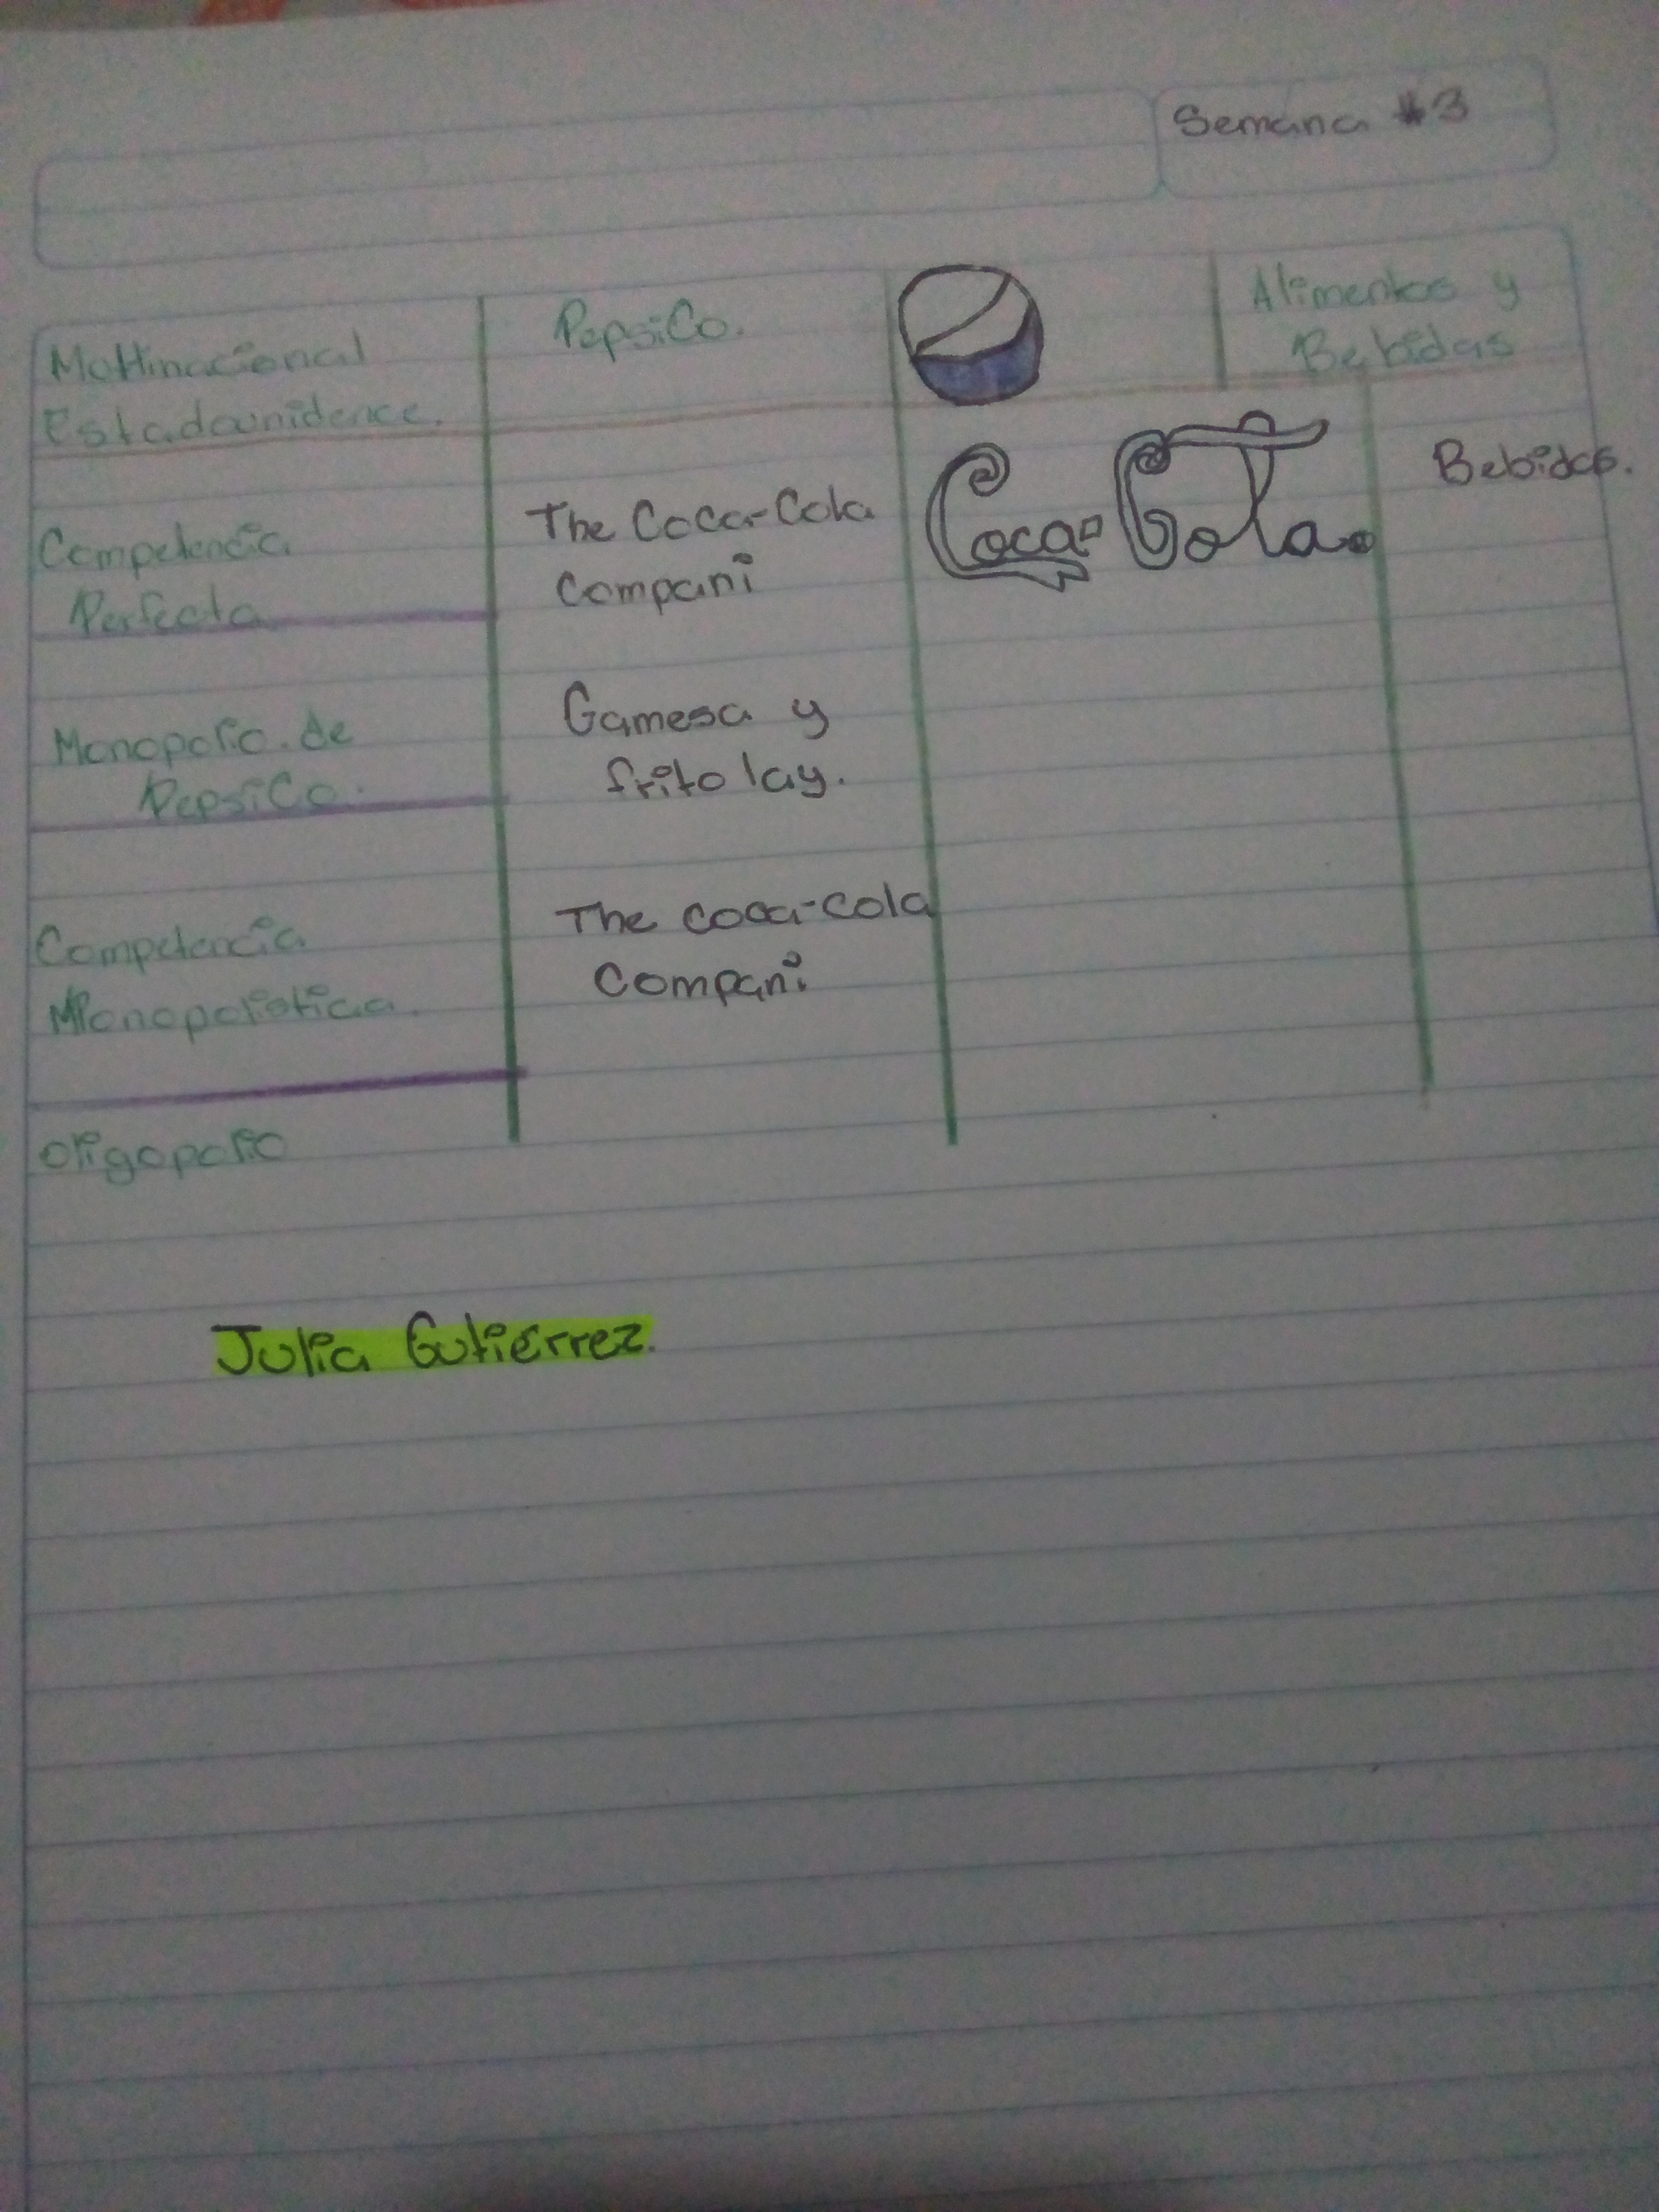 Semana #3
Multinacional
Estadounidence.
PepsiCo.
Alimentos y
Bebidas
Competencia
Perfecta
The Coca-Cola
Compani
Coca-Cola
Bebidas.
Monopolio de
PepsiCo.
Gamesa y
frito lay.
Competencia
Monopolistica.
The coca-cola
Compani
Oligopolio
Julia Gutiérrez.